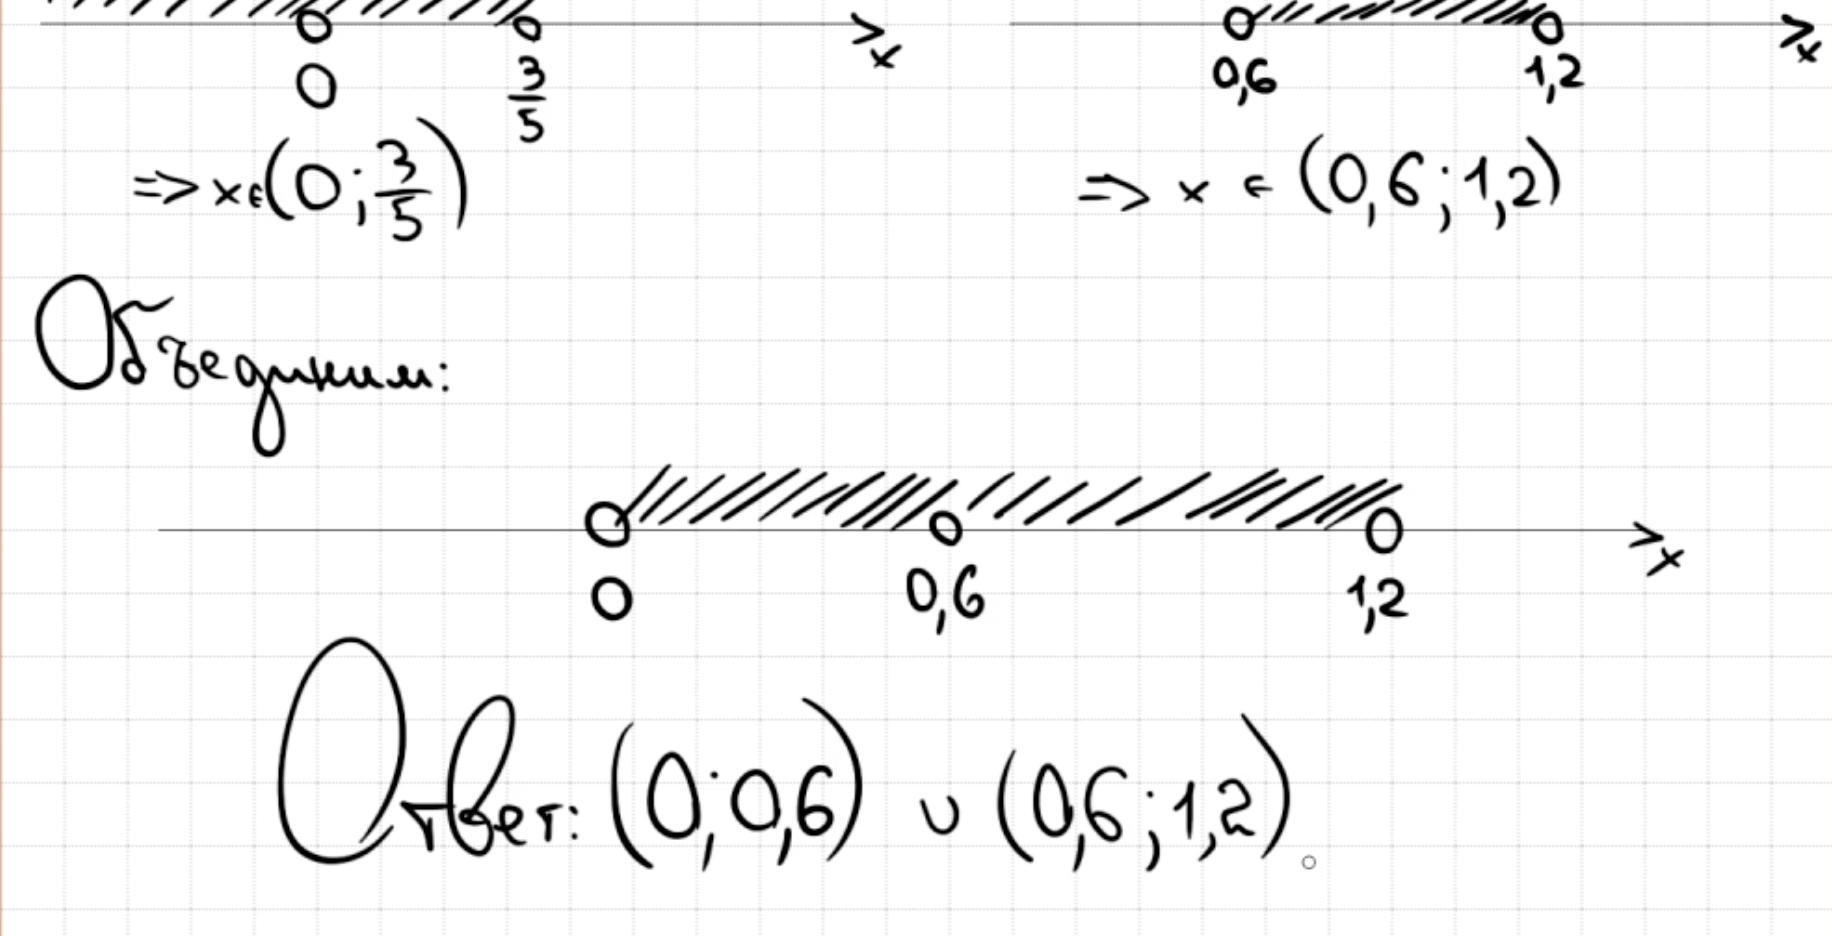 x x
0 3/5 0,6 1,2
=> x ∈ (0; 3/5) => x ∈ (0,6; 1,2)
Объединим:
x
0 0,6 1,2
Ответ: (0; 0,6) ∪ (0,6; 1,2)